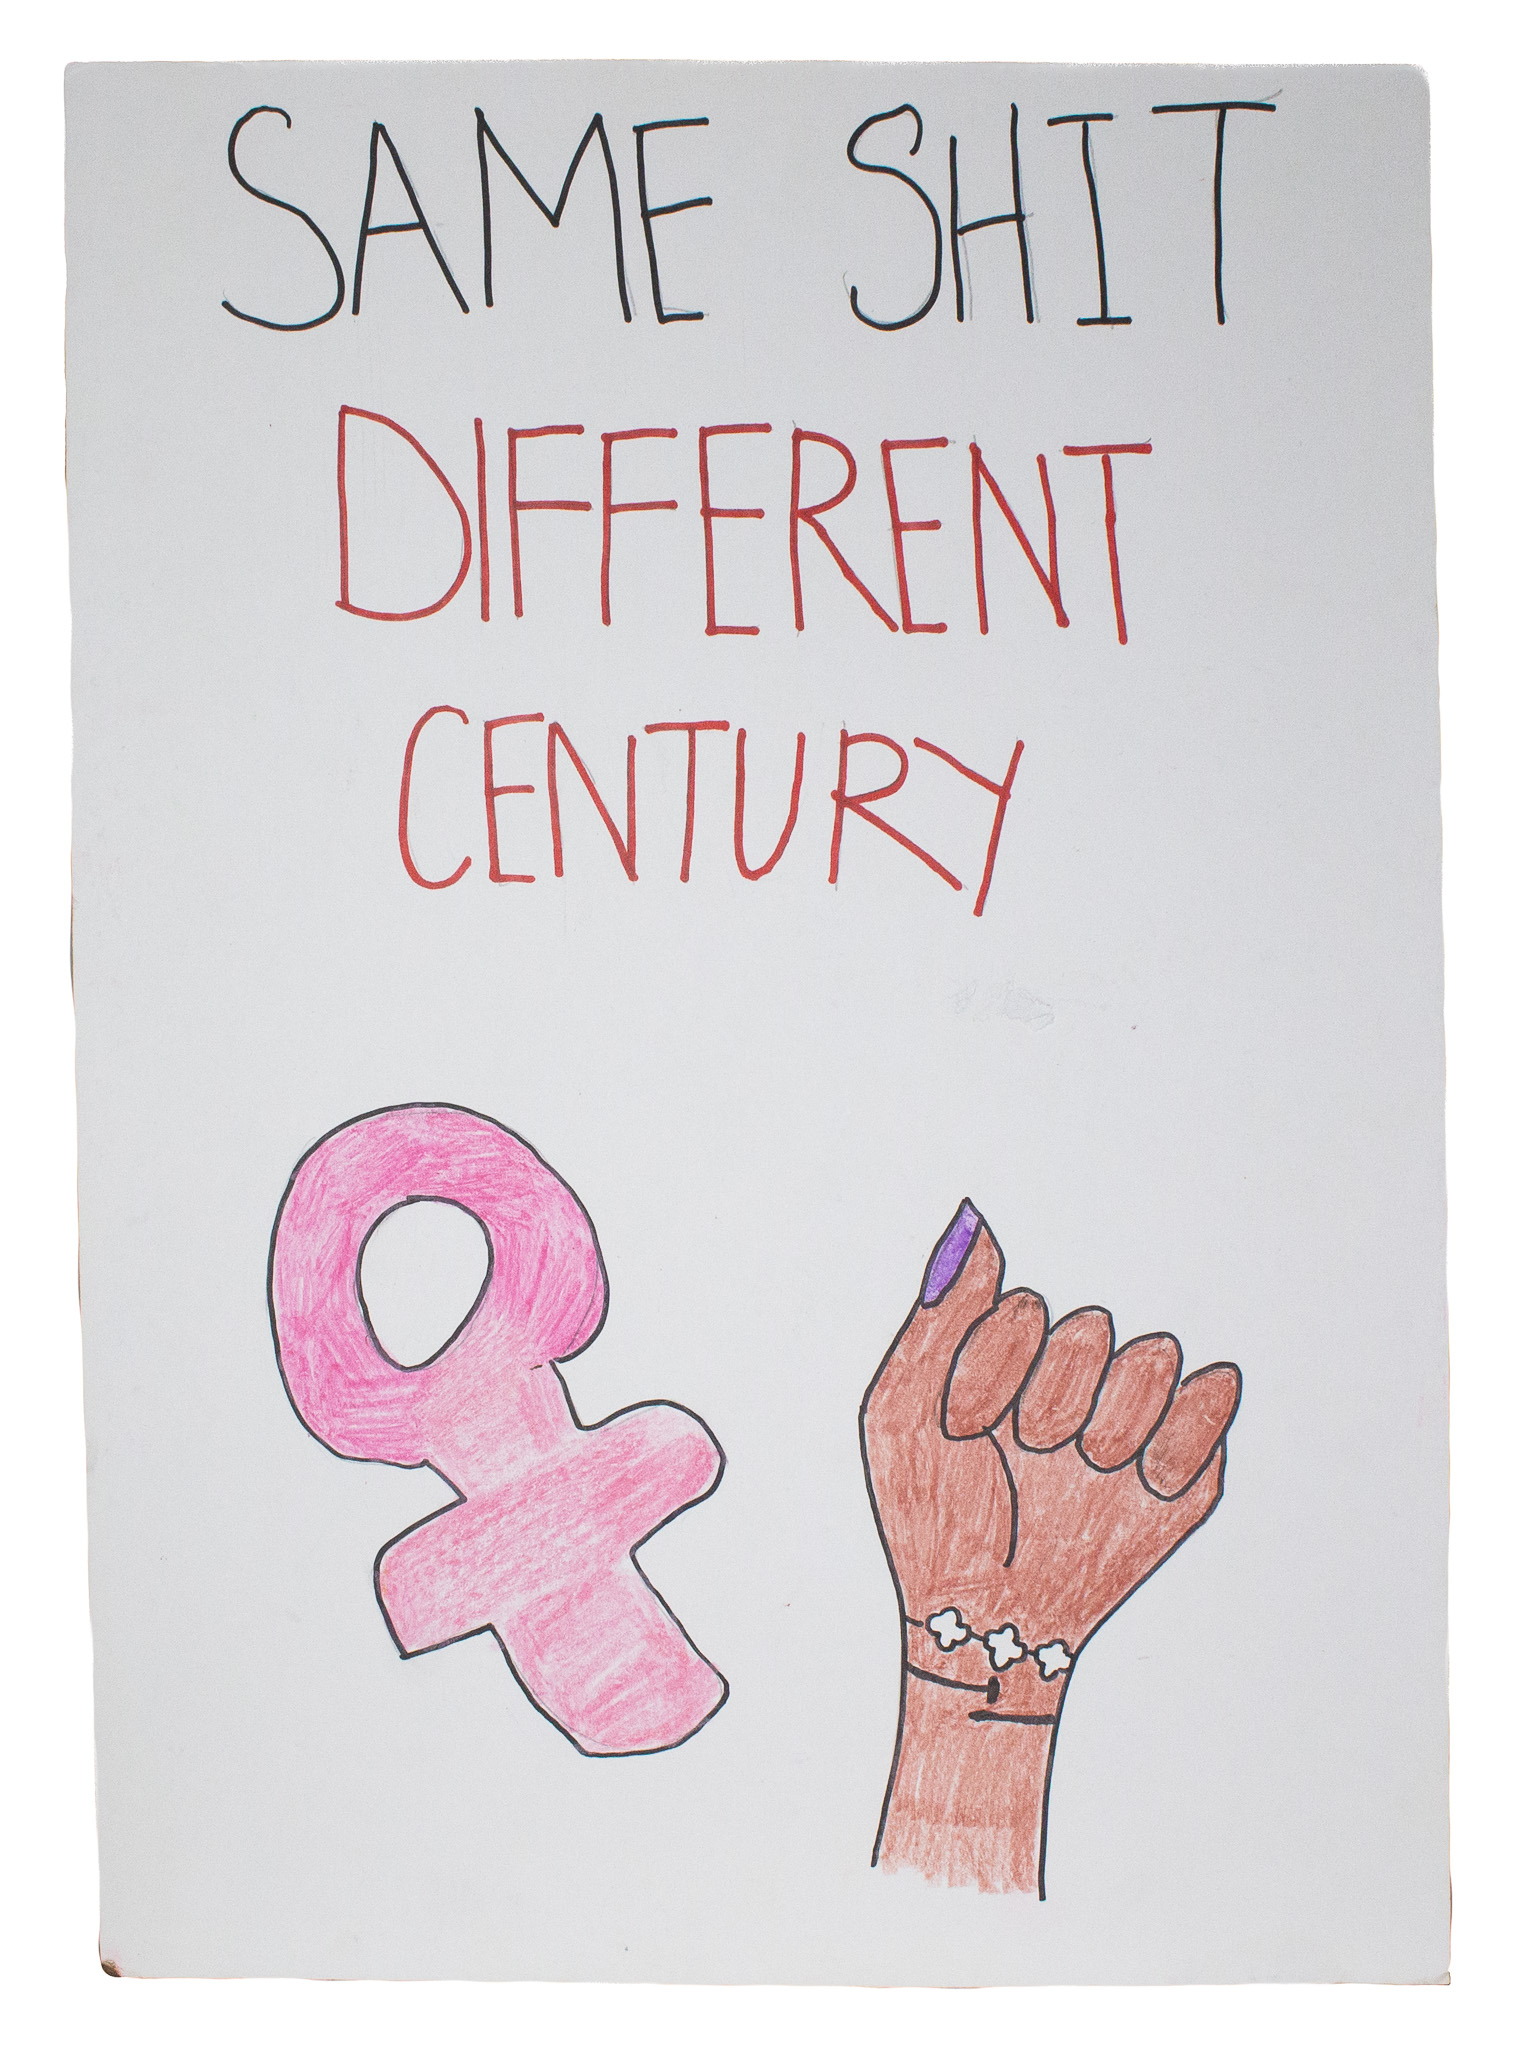 SAME SHIT
DIFFERENT
CENTURY